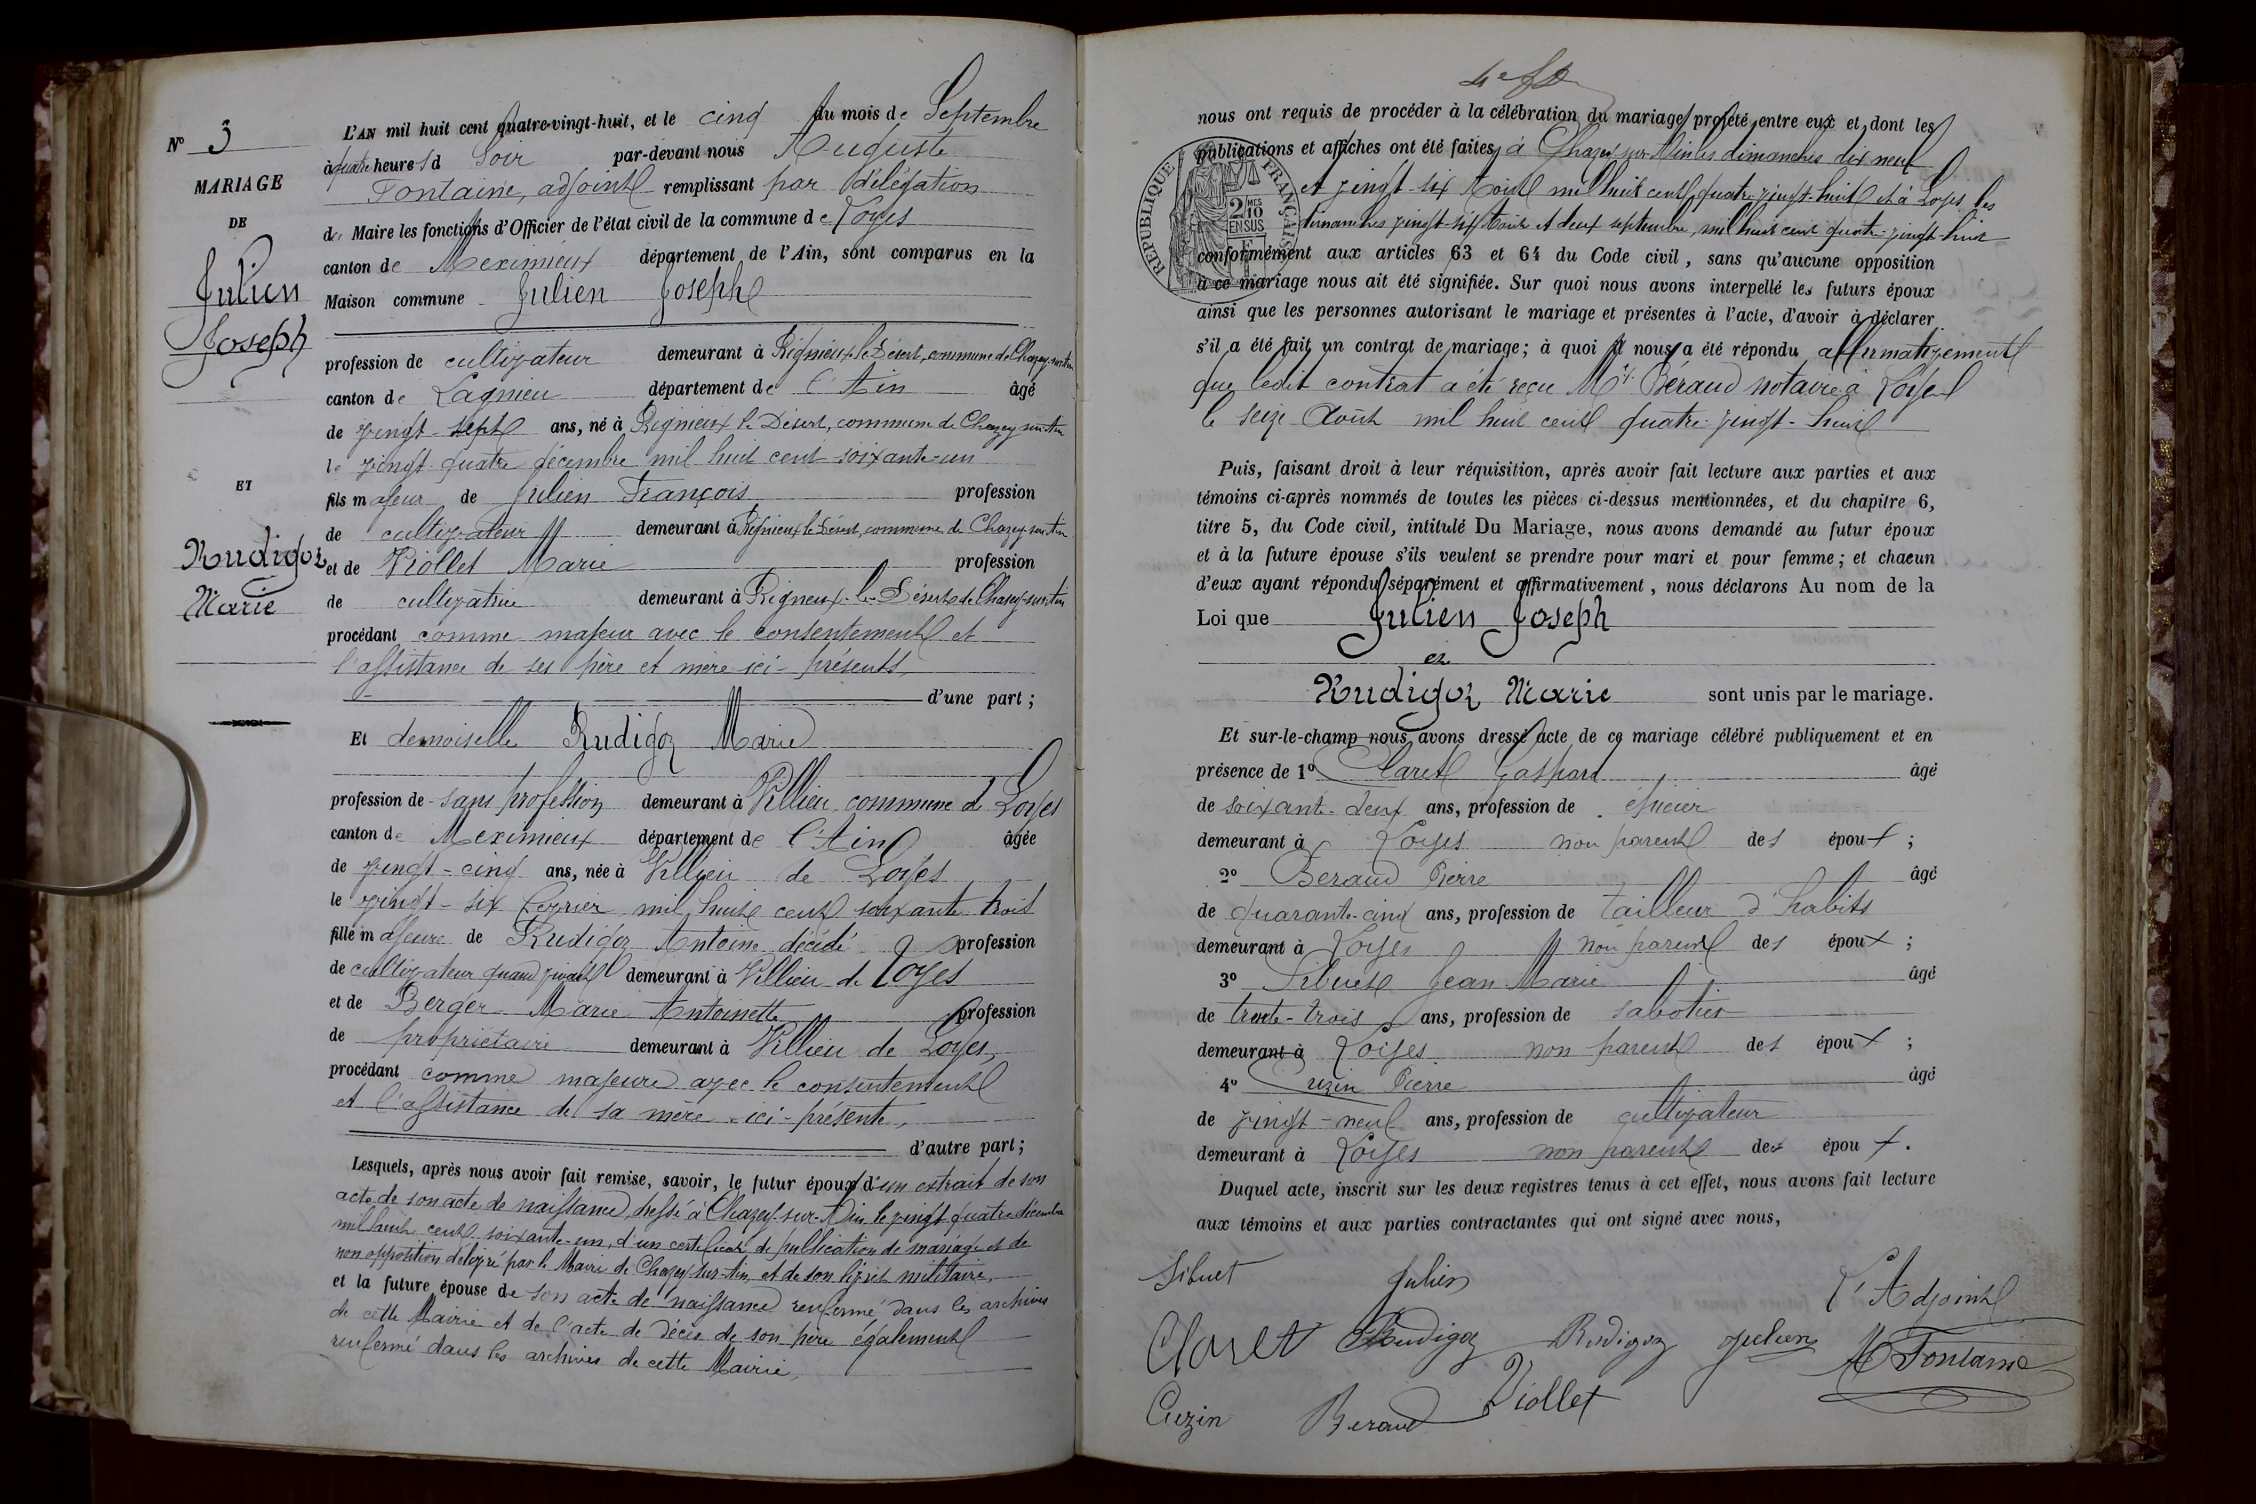 N° 3
MARIAGE
DE
Julien
Joseph
ET
Rudigoz
Marie
L'AN mil huit cent quatre-vingt-huit, et le cinq du mois de Septembre
à quatre heures d Soir par-devant nous Auguste
Fontaine, adjoint remplissant par délégation
de Maire les fonctions d'Officier de l'état civil de la commune de Loyes
canton de Meximieux département de l'Ain, sont comparus en la
Maison commune Julien Joseph
profession de cultivateur demeurant à Rignieux le Désert, commune de Chazey-sur-Ain
canton de Lagnieu département de l'Ain âgé
de vingt-sept ans, né à Rignieux le Désert, commune de Chazey sur Ain
le vingt-quatre décembre mil huit cent soixante-un
fils majeur de Julien François profession
de cultivateur demeurant à Rignieux le Désert, commune de Chazey-sur-Ain
et de Viollet Marie profession
de cultivatrice demeurant à Rigneux-le-Désert de Chazey-sur-Ain
procédant comme majeur avec le consentement et
l'assistance de ses père et mère ici-présents,
d'une part ;
Et demoiselle Rudigoz Marie
profession de sans profession demeurant à Villieu commune de Loyes
canton de Meximieux département de l'Ain âgée
de vingt-cinq ans, née à Villieu de Loyes
le vingt-six février mil huit cent soixante trois
fille majeure de Rudigoz Antoine décédé profession
de cultivateur quand vivait demeurant à Villieu de Loyes
et de Berger Marie Antoinette profession
de propriétaire demeurant à Villieu de Loyes,
procédant comme majeure avec le consentement
et l'assistance de sa mère ici-présente,
d'autre part ;
Lesquels, après nous avoir fait remise, savoir, le futur époux d'un extrait de son
acte de son acte de naissance, dressé à Chazey-sur-Ain le vingt quatre décembre
mil huit cent soixante-un, d'un certificat de publication de mariage et de
non opposition délivré par le Maire de Chazey-sur-Ain, et de son livret militaire,
et la future épouse de son acte de naissance renfermé dans les archives
de cette Mairie et de l'acte de décès de son père également
renfermé dans les archives de cette Mairie,
nous ont requis de procéder à la célébration du mariage projeté entre eux et dont les
publications et affiches ont été faites, à Chazey sur Ain les dimanches dix neuf
et vingt-six Août mil huit cent quatre-vingt-huit et à Loyes les
dimanches vingt-six Août et deux septembre, mil huit cent quatre-vingt-huit
conformément aux articles 63 et 64 du Code civil, sans qu'aucune opposition
à ce mariage nous ait été signifiée. Sur quoi nous avons interpellé les futurs époux
ainsi que les personnes autorisant le mariage et présentes à l'acte, d'avoir à déclarer
s'il a été fait un contrat de mariage ; à quoi il nous a été répondu affirmativement
que ledit contrat a été reçu Béraud notaire à Loyes
le seize Août mil huit cent quatre-vingt-huit
RÉPUBLIQUE FRANÇAISE
2 MES
10
EN SUS
Puis, faisant droit à leur réquisition, après avoir fait lecture aux parties et aux
témoins ci-après nommés de toutes les pièces ci-dessus mentionnées, et du chapitre 6,
titre 5, du Code civil, intitulé Du Mariage, nous avons demandé au futur époux
et à la future épouse s'ils veulent se prendre pour mari et pour femme ; et chacun
d'eux ayant répondu séparément et affirmativement, nous déclarons Au nom de la
Loi que Julien Joseph
et
Rudigoz Marie sont unis par le mariage.
Et sur-le-champ nous avons dressé acte de ce mariage célébré publiquement et en
présence de 1° Claret Gaspard âgé
de soixante-deux ans, profession de épicier
demeurant à Loyes non parent des époux ;
2° Beraud Pierre âgé
de quarante-cinq ans, profession de tailleur d'habits
demeurant à Loyes non parent des époux ;
3° Sibuet Jean Marie âgé
de trente-trois ans, profession de sabotier
demeurant à Loyes non parent des époux ;
4° Cuzin Pierre âgé
de vingt-neuf ans, profession de cultivateur
demeurant à Loyes non parent des époux.
Duquel acte, inscrit sur les deux registres tenus à cet effet, nous avons fait lecture
aux témoins et aux parties contractantes qui ont signé avec nous,
Sibuet Julien L'Adjoint
Claret Rudigoz Rudigoz Julien A Fontaine
Cuzin Beraud Viollet